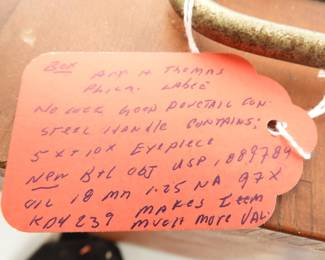 Box Arr H Thomas
Phila. Lable
No lock Good Dovetail Con.
Steel Handle Contains;
5X + 10X Eyepiece
New B+L Obj USP 1889784
Oil 18 mm 1.25 NA 97X
KDY 239 Makes Item
Much More Val.